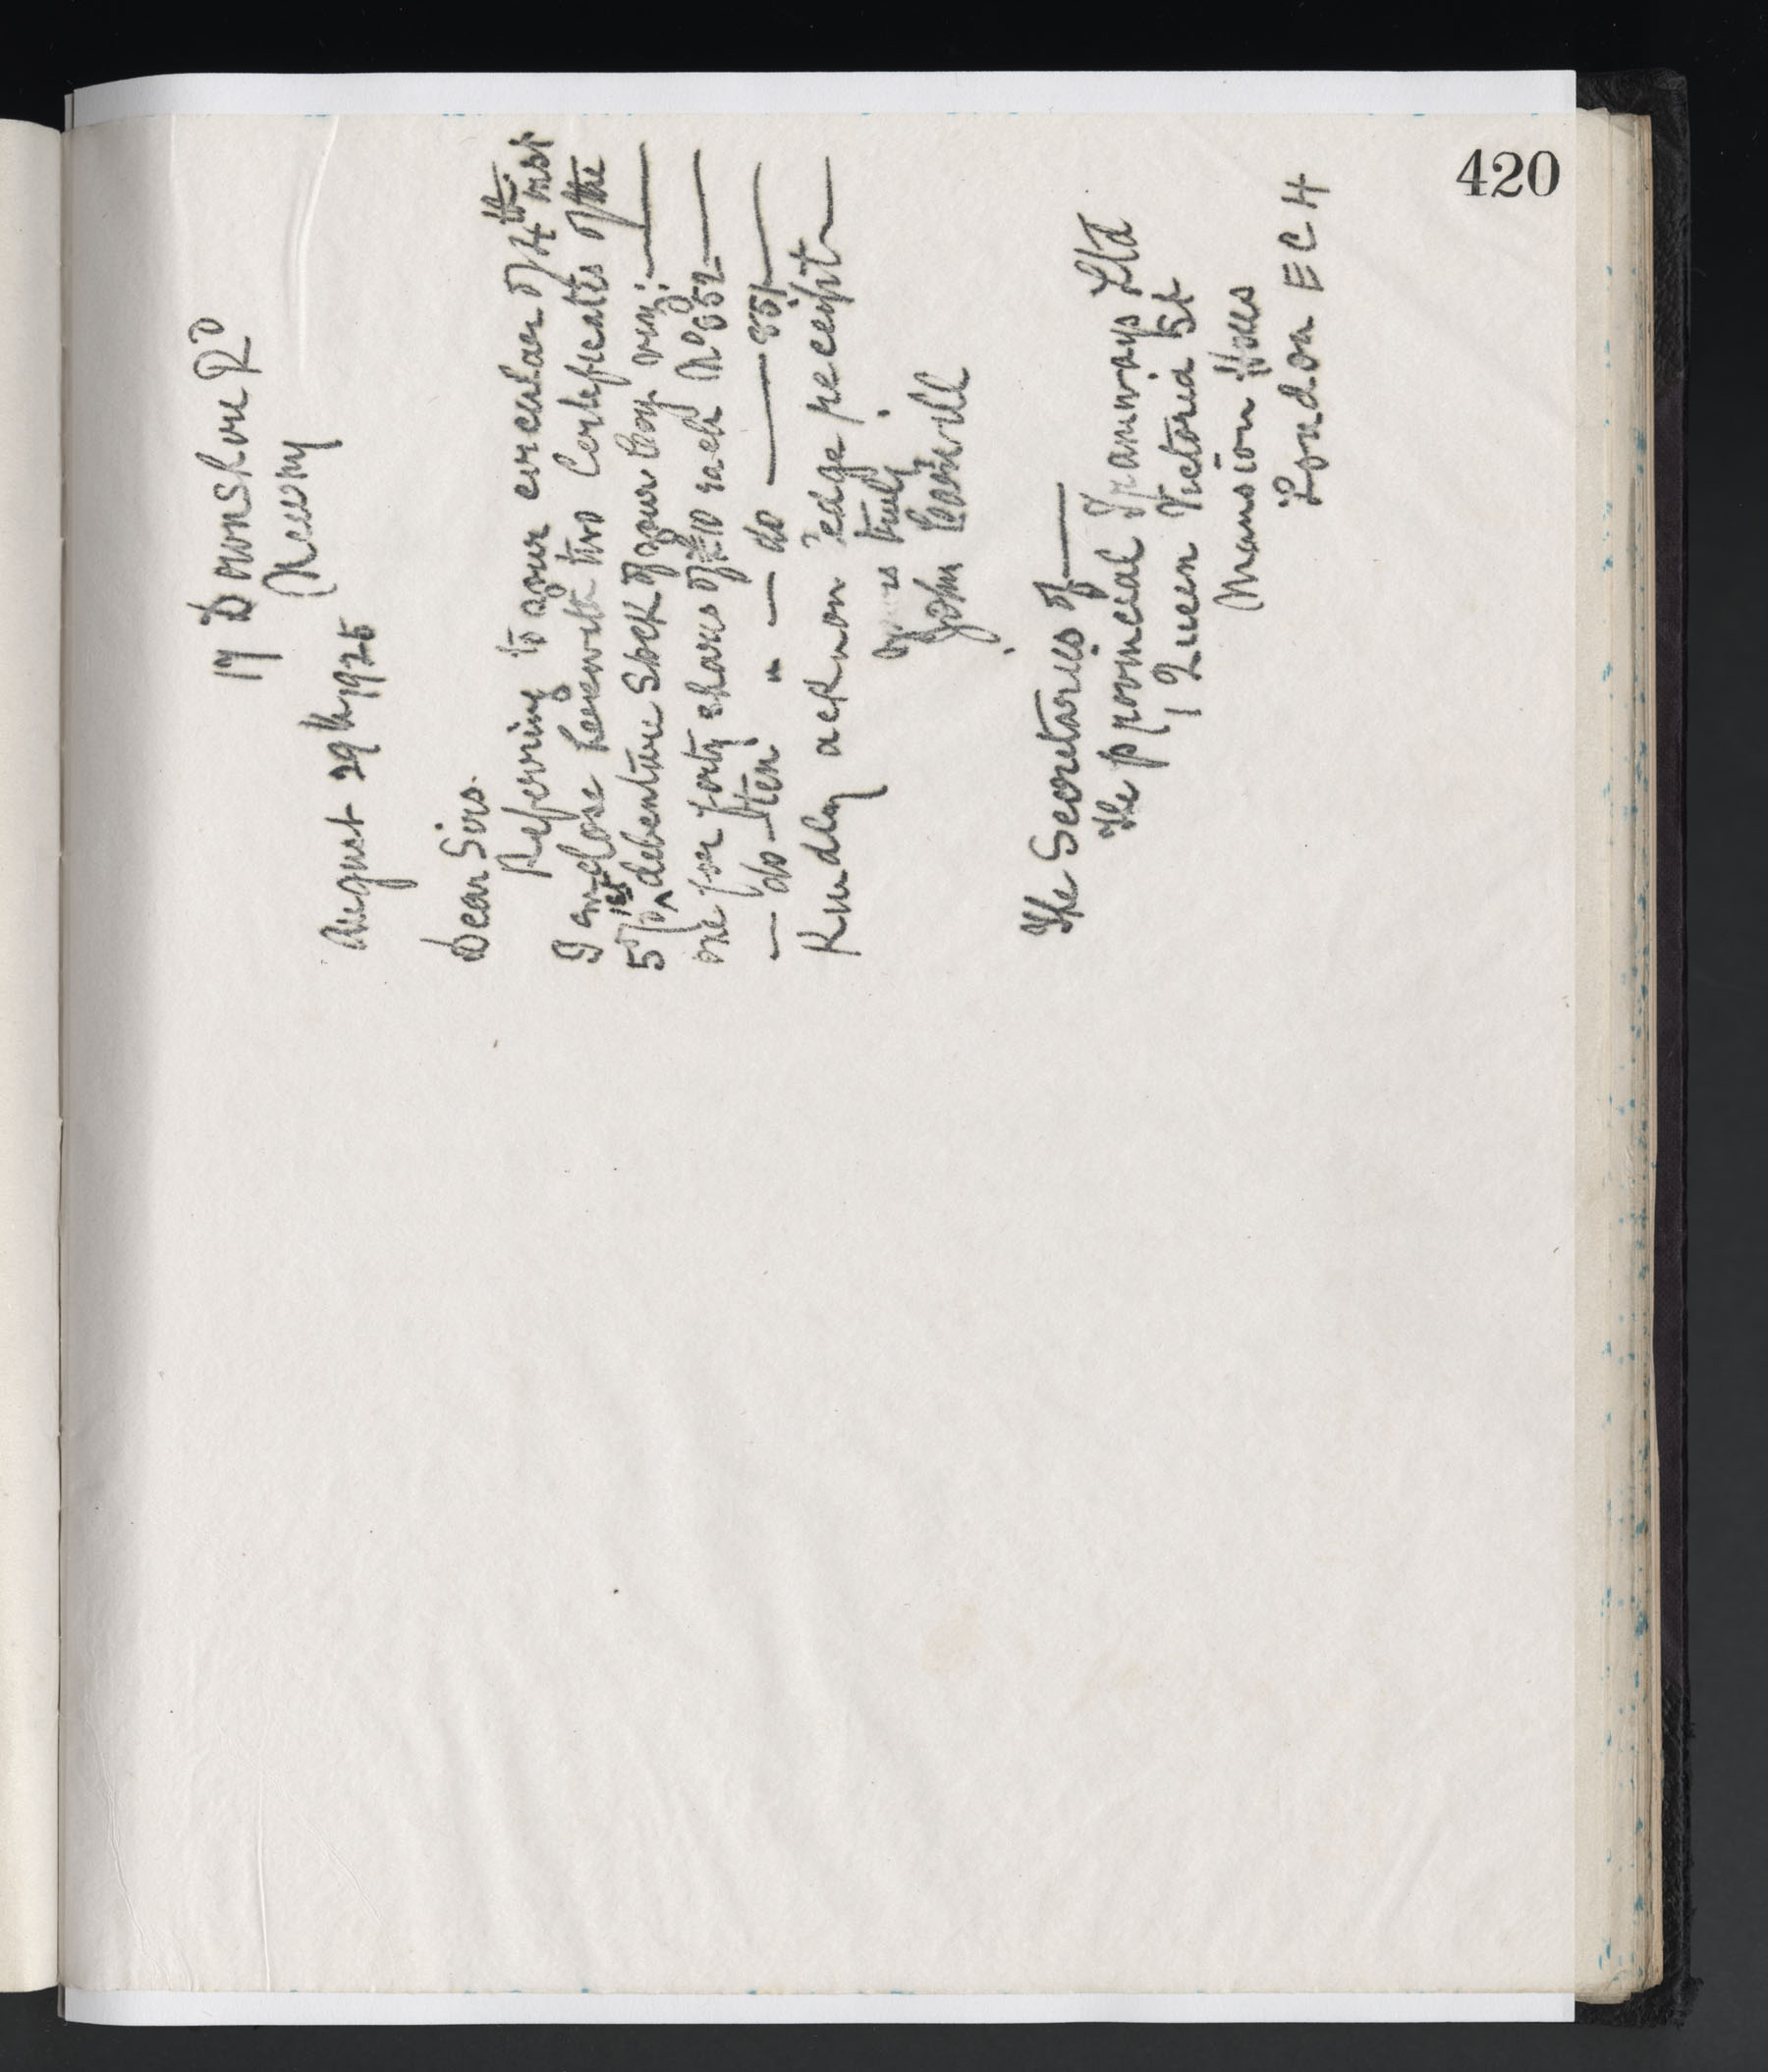 420
17 Downshire Rd
Newry
August 29th 1925
Dear Sirs.
Referring to your circular of 14th inst
I enclose herewith two Certificates of the
5% 1st debenture Stock of your Coy viz:
one for forty shares of £10 each No 652
— do — ten " — do — 851
Kindly acknowledge receipt
Yours truly
John
The Secretaries of
The provincial Tramways Ltd
1 Queen Victoria St
Mansion
London E C 4